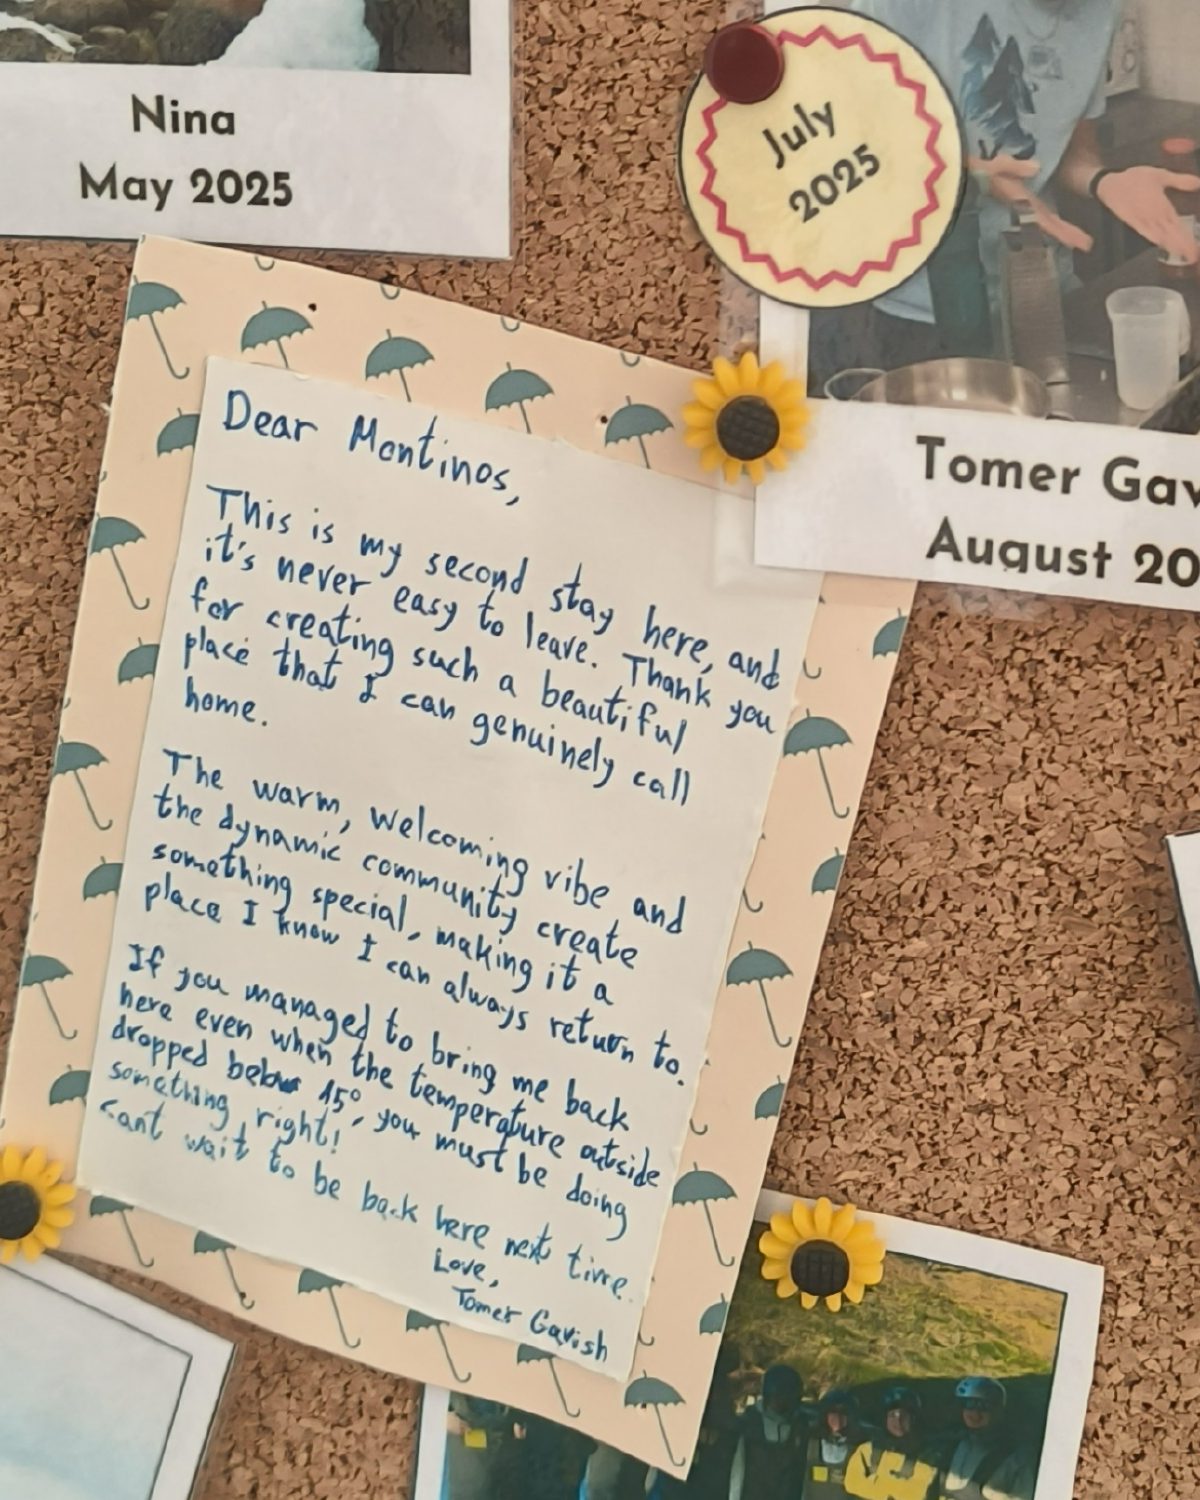 Nina
May 2025
July
2025
Tomer Gav
August 20
Dear Montinos,
This is my second stay here, and
it's never easy to leave. Thank you
for creating such a beautiful
place that I can genuinely call
home.
The warm, welcoming vibe and
the dynamic community create
something special, making it a
place I know I can always return to.
If you managed to bring me back
here even when the temperature outside
dropped below 15°, you must be doing
something right!
cant wait to be back here next time.
Love,
Tomer Gavish